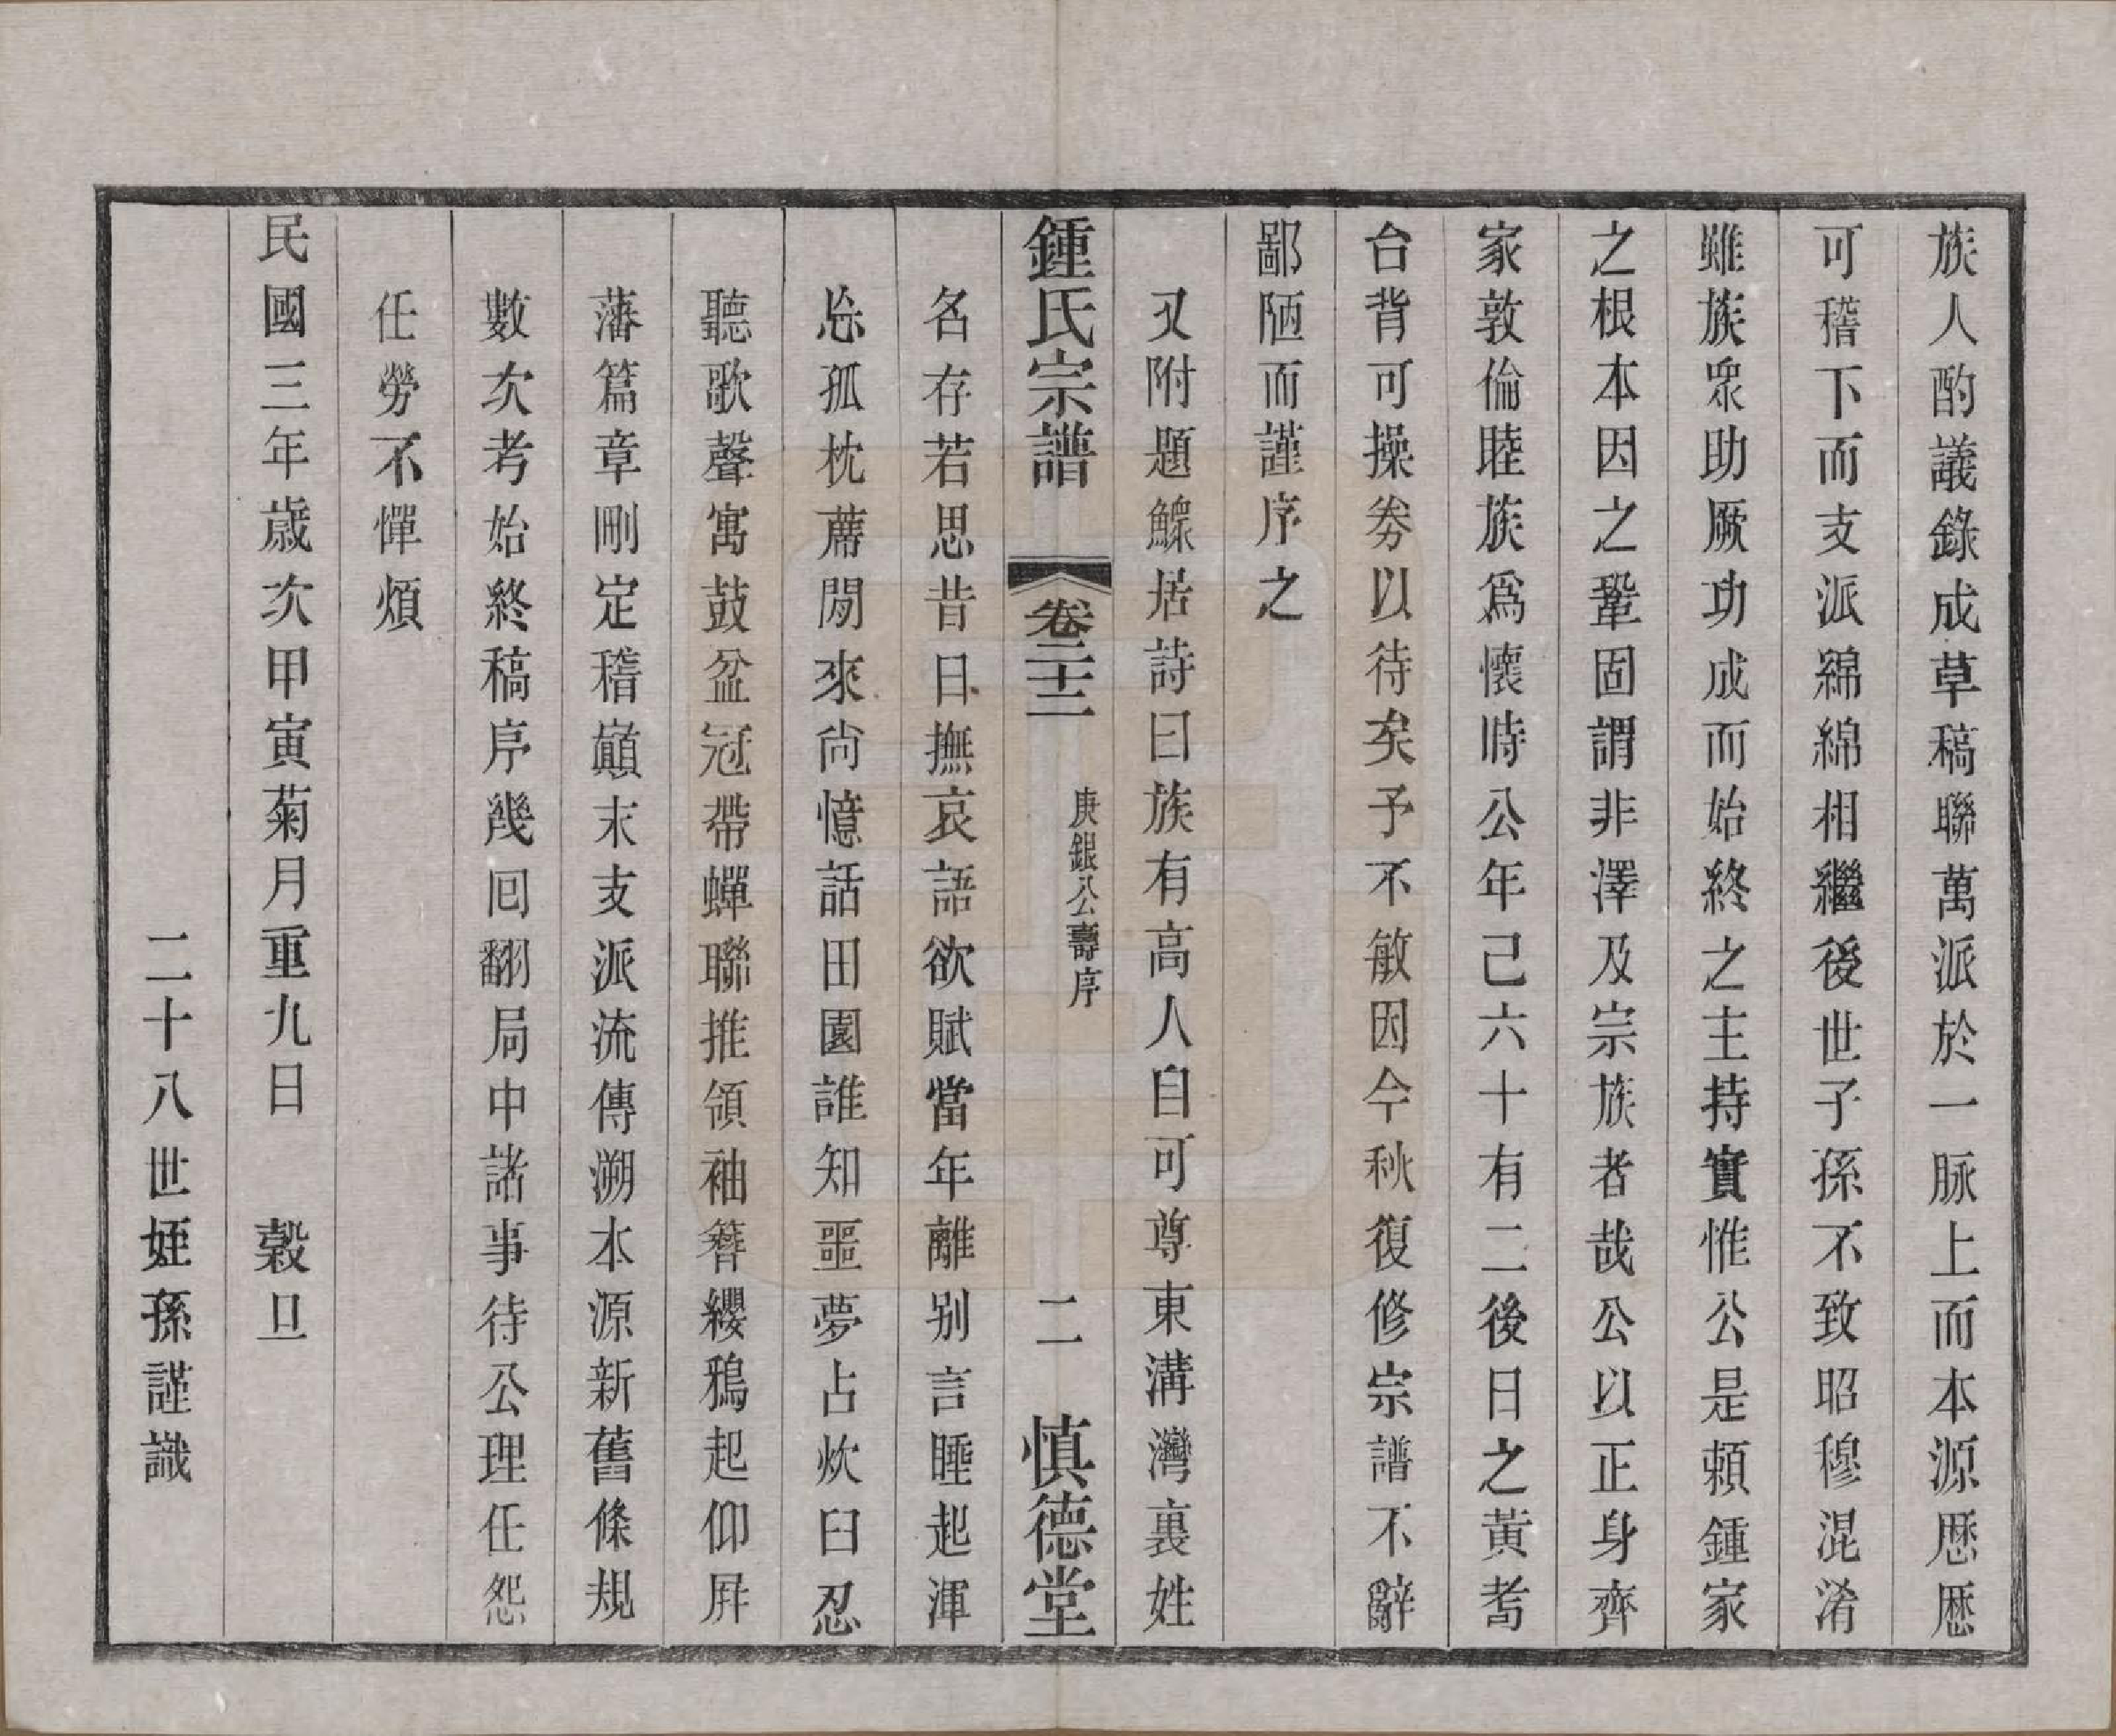 族人酌議錄成草稿聯萬派於一脈上而本源厯厯
可稽下而支派綿綿相繼後世子孫不致昭穆混淆
雖族眾助厥功成而始終之主持實惟公是賴鍾家
之根本因之鞏固謂非澤及宗族者哉公以正身齊
家敦倫睦族爲懷時公年己六十有二後日之黃耇
台背可操劵以待矣予不敏因今秋復修宗譜不辭
鄙陋而謹序之
又附題鰥居詩曰族有高人自可尊東溝灣裏姓
鍾氏宗譜 卷二十二 庚銀公壽序 二 慎德堂
名存若思昔日撫哀語欲賦當年離别言睡起渾
忩孤枕蓆閒來尚憶話田園誰知噩夢占炊臼忍
聽歌聲寓鼓盆冠帶蟬聯推領袖簪纓鴉起仰屏
藩篇章刪定稽巔末支派流傳溯本源新舊條規
數次考始終稿序幾回翻局中諸事待公理任怨
任勞不憚煩
民國三年歲次甲寅菊月重九日 穀旦
二十八世姪孫謹識